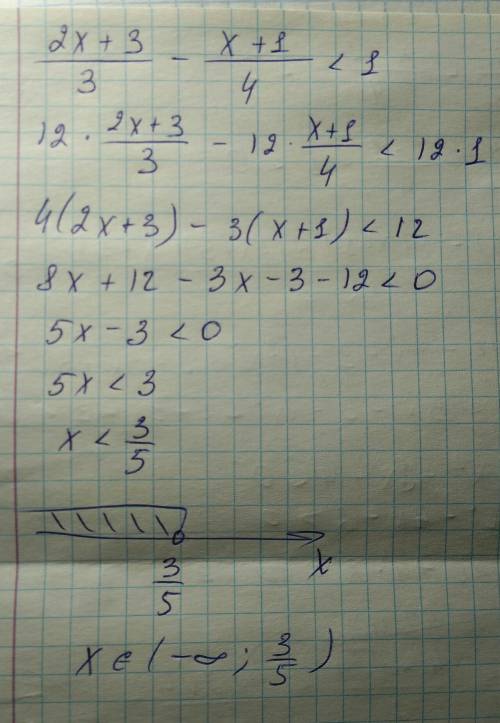 (2x + 3)/3 - (x + 1)/4 < 1
12 · (2x+3)/3 - 12 · (x+1)/4 < 12 · 1
4(2x+3) - 3(x+1) < 12
8x + 12 - 3x - 3 - 12 < 0
5x - 3 < 0
5x < 3
x < 3/5
3/5 x
x ∈ (-∞; 3/5)